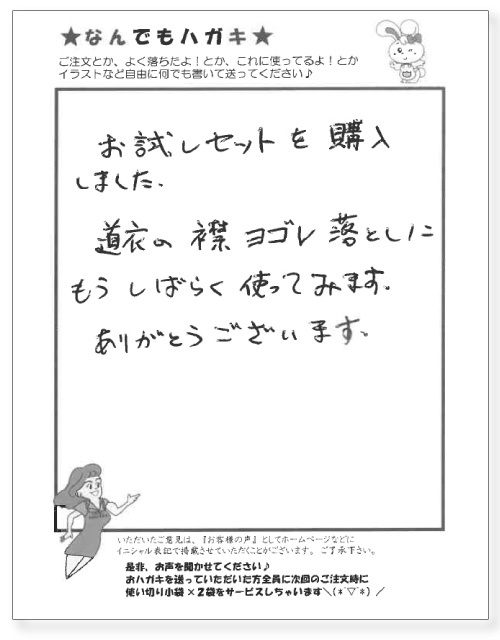 ★なんでもハガキ★
ご注文とか、よく落ちたよ!とか、これに使ってるよ!とか
イラストなど自由に何でも書いて送ってください♪
お試しセットを購入
しました.
道衣の襟ヨゴレ落としに
もうしばらく使ってみます.
ありがとうございます.
いただいたご意見は、『お客様の声』としてホームページなどに
イニシャル表記で掲載させていただくことがございます。ご了承下さい。
是非、お声を聞かせてください♪
おハガキを送っていただいた方全員に次回のご注文時に
使い切り小袋×2袋をサービスしちゃいます＼(*´▽`*)／